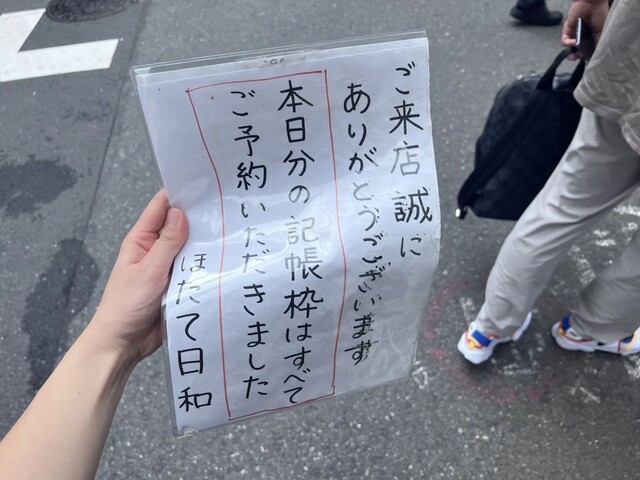 ご来店誠に
ありがとうございます
本日分の記帳枠はすべて
ご予約いただきました
ほたて日和